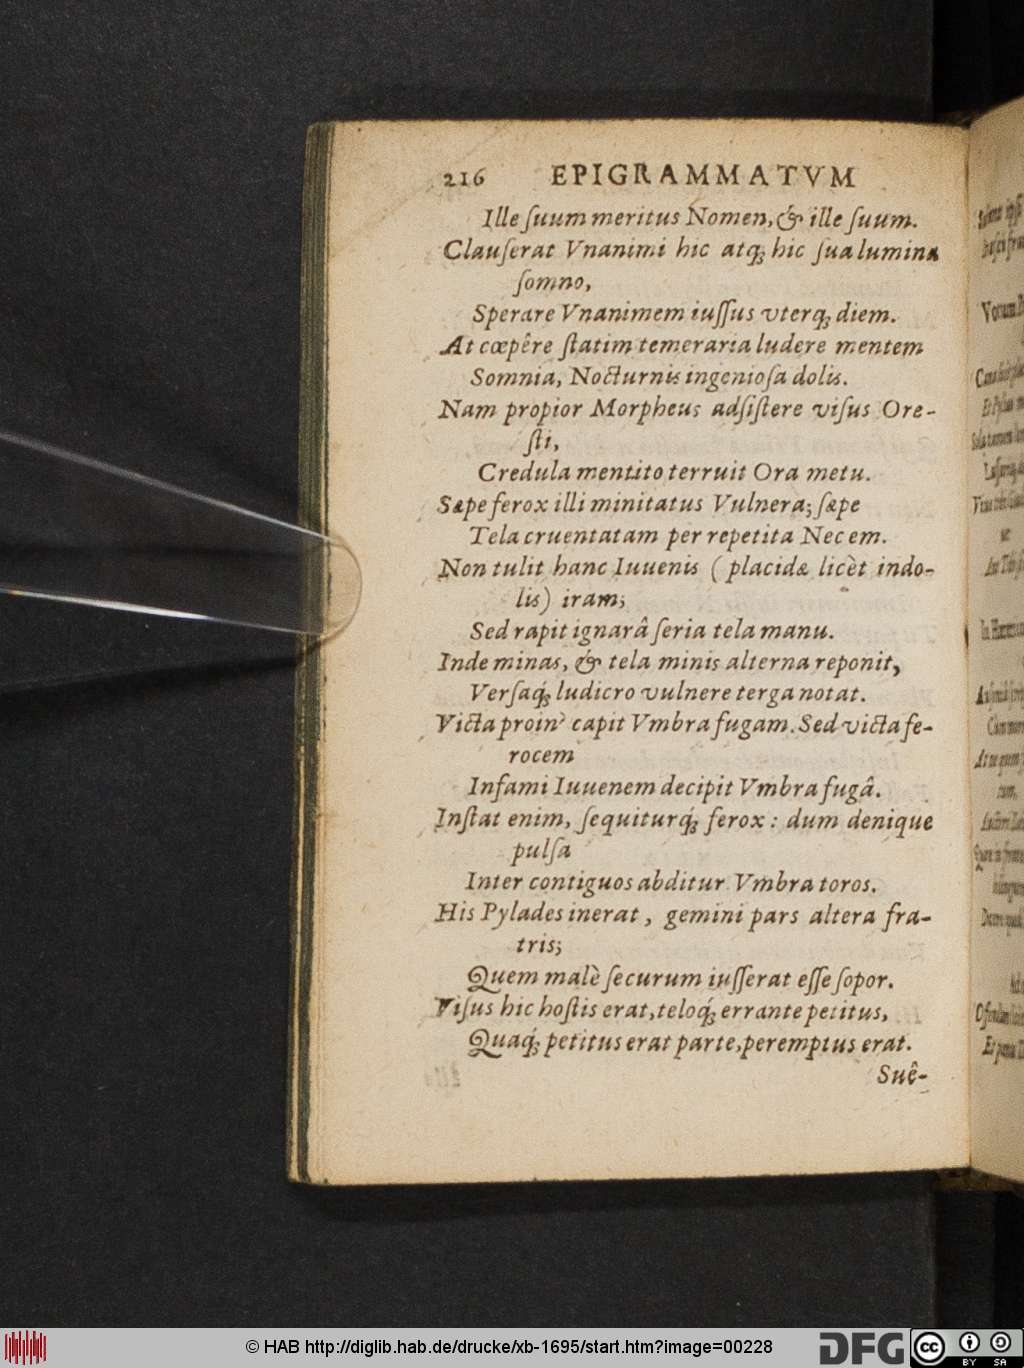 216 EPIGRAMMATVM
Ille ſuum meritus Nomen, & ille ſuum.
Clauſerat Vnanimi hic atqꝫ hic ſua lumina
ſomno,
Sperare Vnanimem iuſſus vterqꝫ diem.
At cœpêre ſtatim temeraria ludere mentem
Somnia, Nocturnis ingenioſa dolis.
Nam propior Morpheus adſiſtere viſus Ore-
ſti,
Credula mentito terruit Ora metu.
Sæpe ferox illi minitatus Vulnera; ſæpe
Tela cruentatam per repetita Necem.
Non tulit hanc Iuuenis (placidæ licèt indo-
lis) iram;
Sed rapit ignarâ ſeria tela manu.
Inde minas, & tela minis alterna reponit,
Verſaqꝫ́ ludicro vulnere terga notat.
Victa proin' capit Vmbra fugam. Sed victa fe-
rocem
Infami Iuuenem decipit Vmbra fugâ.
Inſtat enim, ſequiturqꝫ́ ferox: dum denique
pulſa
Inter contiguos abditur Vmbra toros.
His Pylades inerat, gemini pars altera fra-
tris;
Quem malè ſecurum iuſſerat eſſe ſopor.
Viſus hic hoſtis erat, teloqꝫ́ errante petitus,
Quaqꝫ́ petitus erat parte, peremptus erat.
Suê-
© HAB http://diglib.hab.de/drucke/xb-1695/start.htm?image=00228
DFG
cc
BY SA